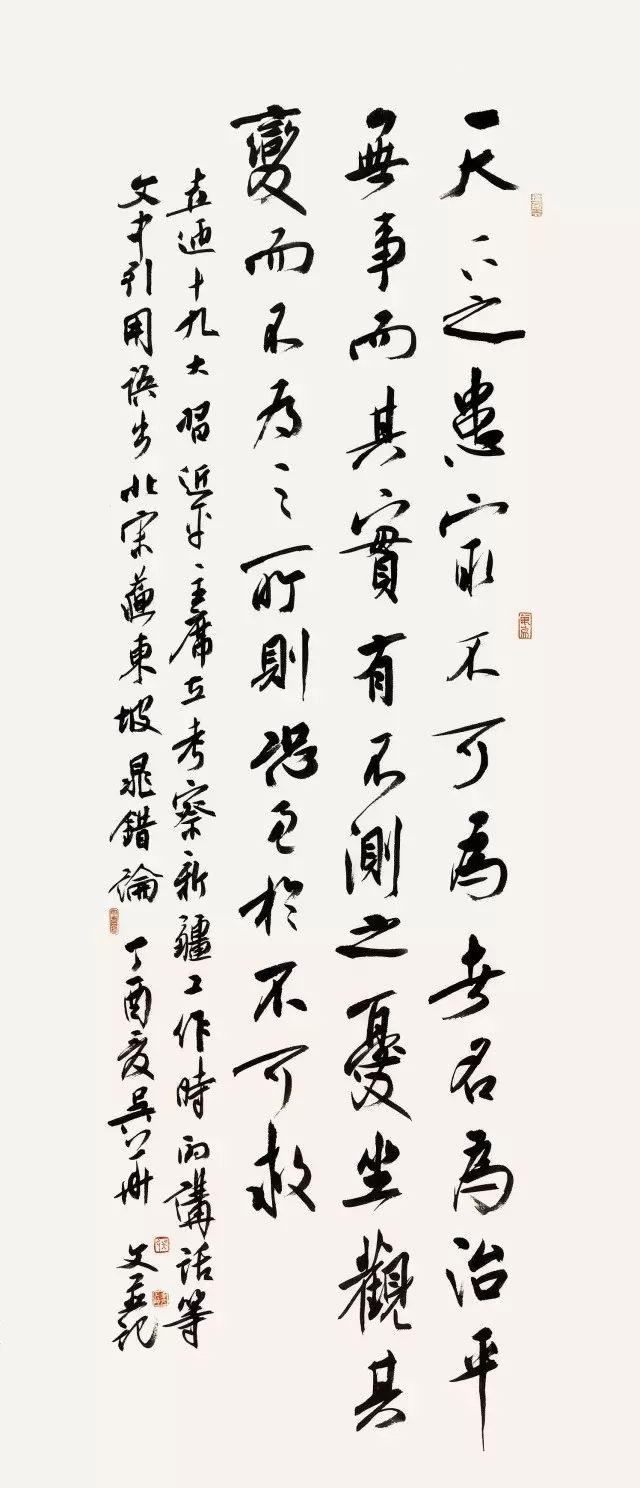 天下之患宲不可為者名為治平
無事而其實有不測之憂坐觀其
變而不為之所則恐至於不可救
喜迎十九大習近平主席在考察新疆工作時的講話等
文中引用語出北宋蘇東坡晁錯論 丁酉夏吳 文 記